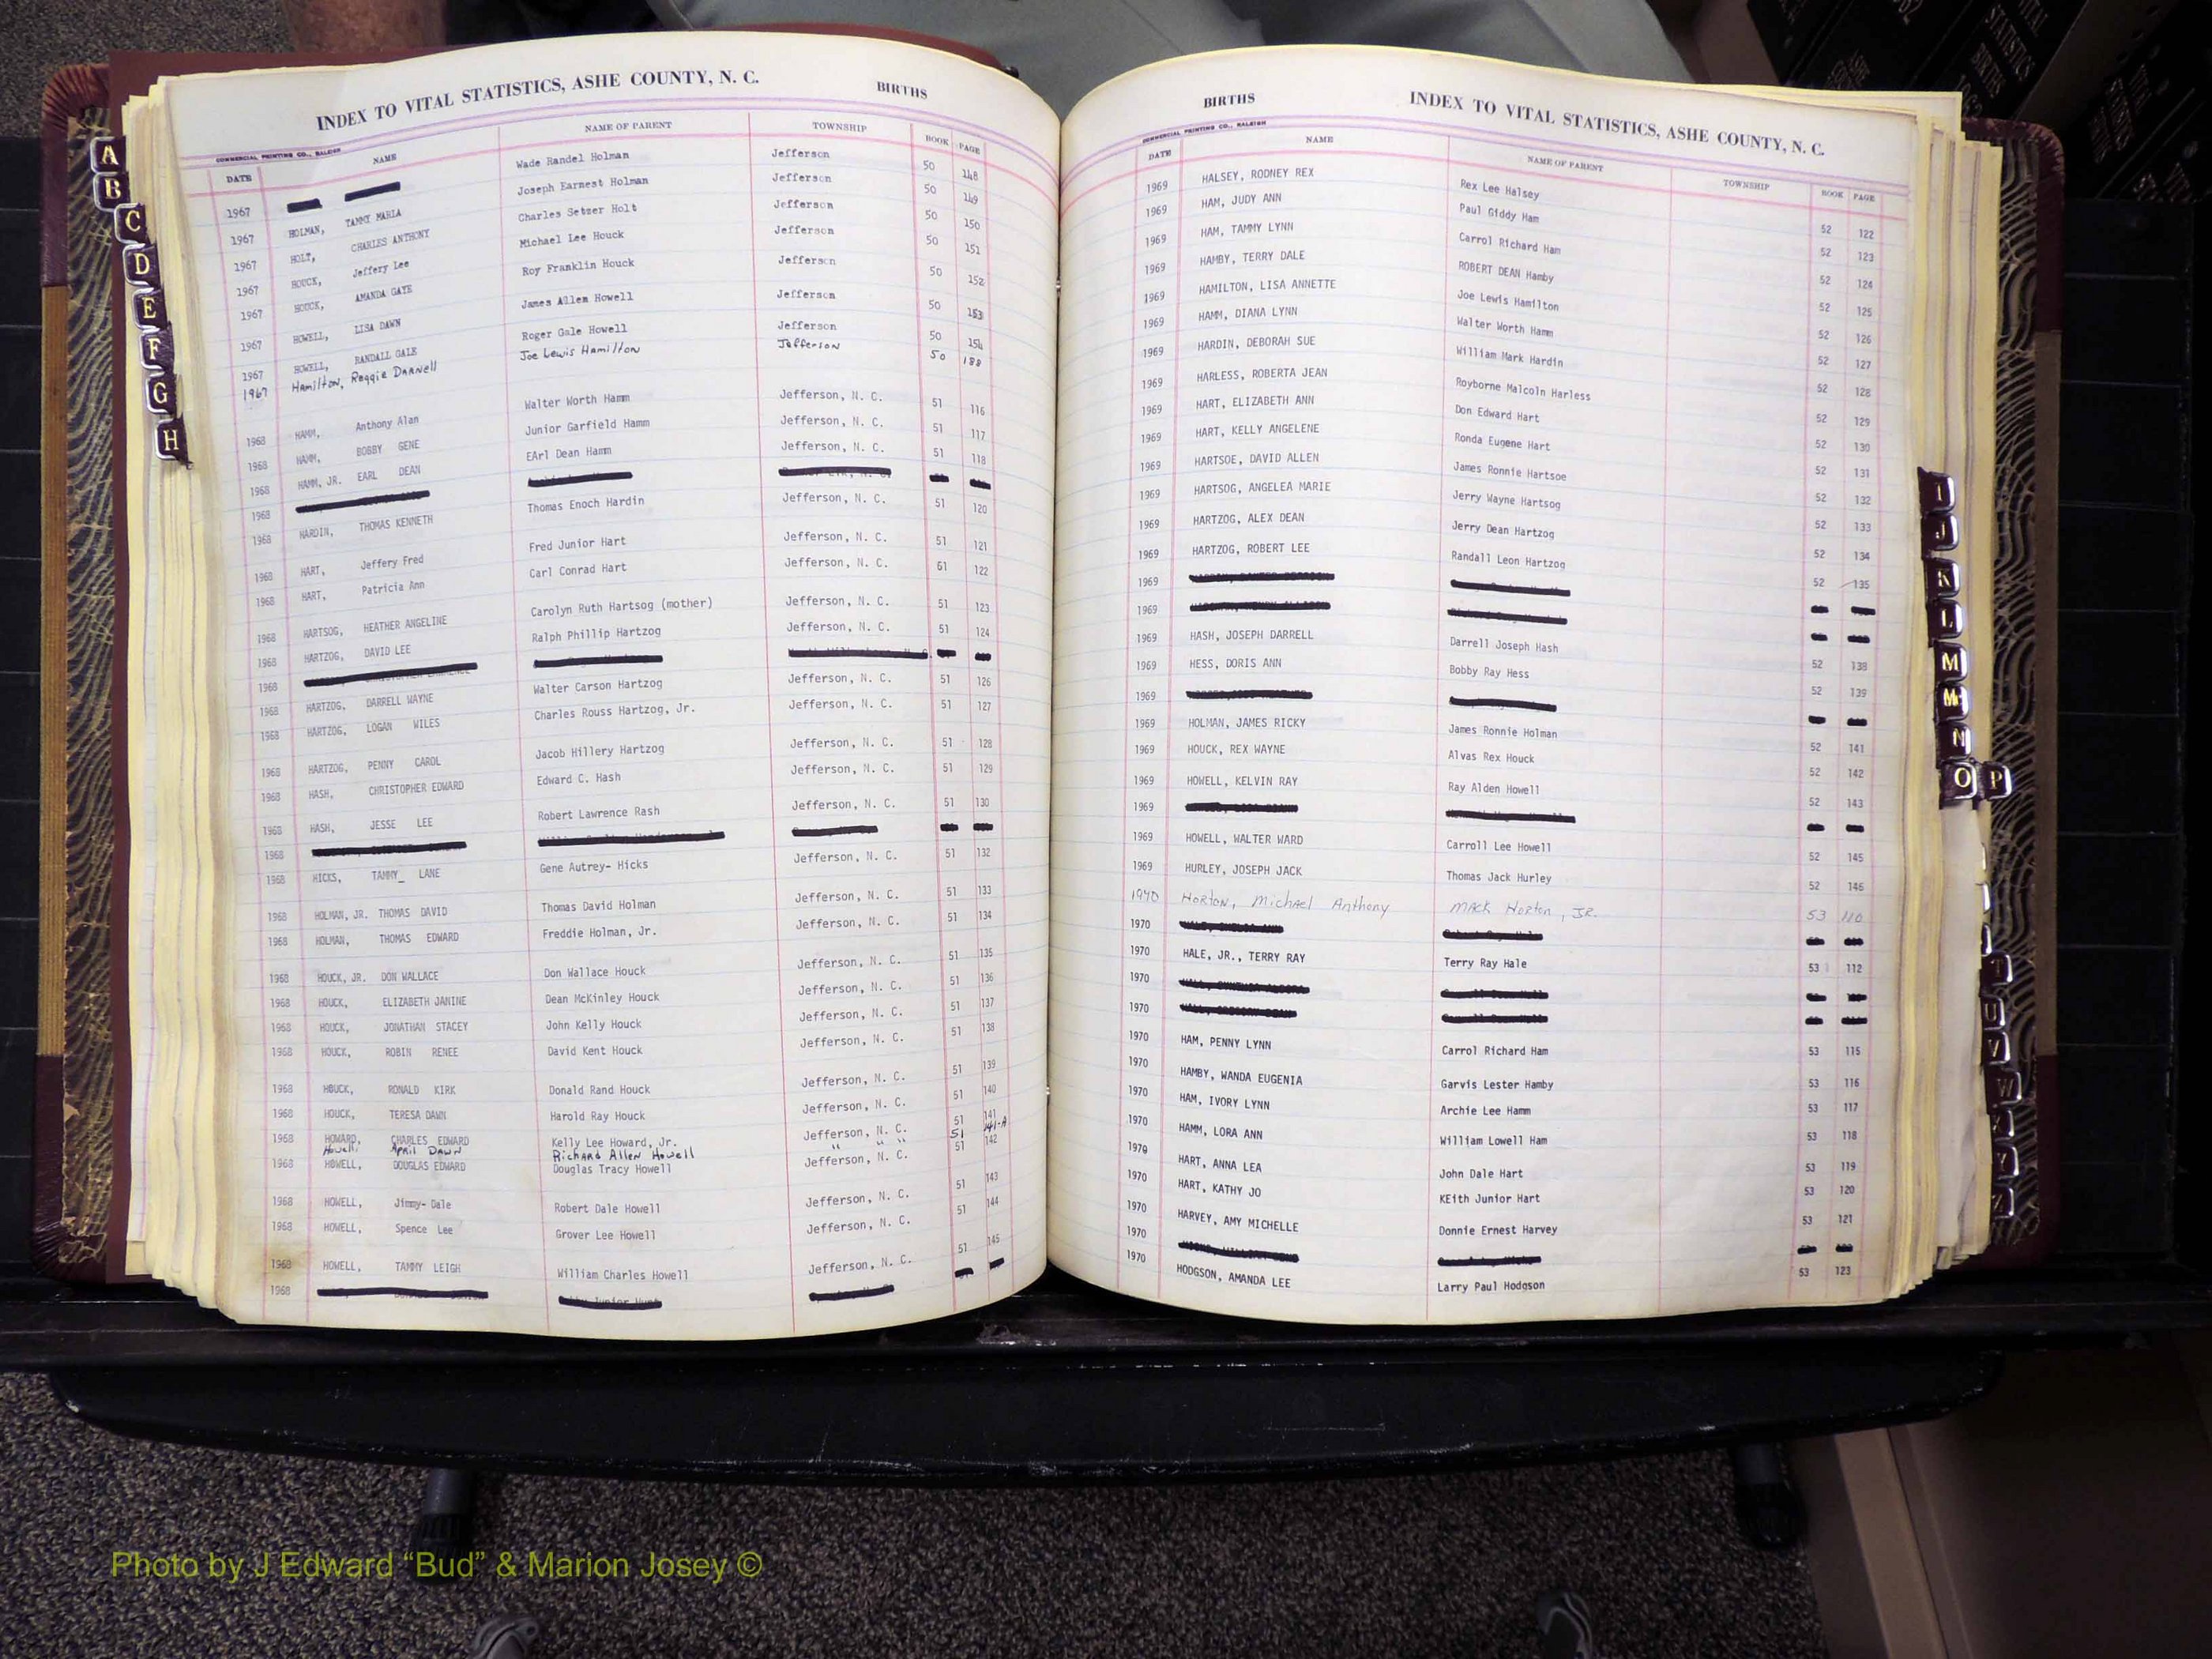 INDEX TO VITAL STATISTICS, ASHE COUNTY, N. C. BIRTHS
COMMERCIAL PRINTING CO., RALEIGH
DATE NAME NAME OF PARENT TOWNSHIP BOOK PAGE
1967 Wade Randel Holman Jefferson 50 148
1967 HOLMAN, TAMMY MARIA Joseph Earnest Holman Jefferson 50 149
1967 HOLT, CHARLES ANTHONY Charles Setzer Holt Jefferson 50 150
1967 HOUCK, Jeffery Lee Michael Lee Houck Jefferson 50 151
1967 HOUCK, AMANDA GAYE Roy Franklin Houck Jefferson 50 152
1967 HOWELL, LISA DAWN James Allen Howell Jefferson 50 153
1967 HOWELL, RANDALL GALE Roger Gale Howell Jefferson 50 154
1967 Hamilton, Reggie Darnell Joe Lewis Hamilton Jefferson 50 188
1968 HAMM, Anthony Alan Walter Worth Hamm Jefferson, N. C. 51 116
1968 HAMM, BOBBY GENE Junior Garfield Hamm Jefferson, N. C. 51 117
1968 HAMM, JR. EARL DEAN EArl Dean Hamm Jefferson, N. C. 51 118
1968
1968 HARDIN, THOMAS KENNETH Thomas Enoch Hardin Jefferson, N. C. 51 120
1968 HART, Jeffery Fred Fred Junior Hart Jefferson, N. C. 51 121
1968 HART, Patricia Ann Carl Conrad Hart Jefferson, N. C. 61 122
1968 HARTSOG, HEATHER ANGELINE Carolyn Ruth Hartsog (mother) Jefferson, N. C. 51 123
1968 HARTZOG, DAVID LEE Ralph Phillip Hartzog Jefferson, N. C. 51 124
1968
1968 HARTZOG, DARRELL WAYNE Walter Carson Hartzog Jefferson, N. C. 51 126
1968 HARTZOG, LOGAN WILES Charles Rouss Hartzog, Jr. Jefferson, N. C. 51 127
1968 HARTZOG, PENNY CAROL Jacob Hillery Hartzog Jefferson, N. C. 51 128
1968 HASH, CHRISTOPHER EDWARD Edward C. Hash Jefferson, N. C. 51 129
1968 HASH, JESSE LEE Robert Lawrence Rash Jefferson, N. C. 51 130
1968
1968 HICKS, TAMMY_ LANE Gene Autrey- Hicks Jefferson, N. C. 51 132
1968 HOLMAN, JR. THOMAS DAVID Thomas David Holman Jefferson, N. C. 51 133
1968 HOLMAN, THOMAS EDWARD Freddie Holman, Jr. Jefferson, N. C. 51 134
1968 HOUCK, JR. DON WALLACE Don Wallace Houck Jefferson, N. C. 51 135
1968 HOUCK, ELIZABETH JANINE Dean McKinley Houck Jefferson, N. C. 51 136
1968 HOUCK, JONATHAN STACEY John Kelly Houck Jefferson, N. C. 51 137
1968 HOUCK, ROBIN RENEE David Kent Houck Jefferson, N. C. 51 138
1968 HOUCK, RONALD KIRK Donald Rand Houck Jefferson, N. C. 51 139
1968 HOUCK, TERESA DAWN Harold Ray Houck Jefferson, N. C. 51 140
1968 HOWARD, CHARLES EDWARD Kelly Lee Howard, Jr. Jefferson, N. C. 51 141
Howell, April Dawn Richard Allen Howell " " " 51 141-A
1968 HOWELL, DOUGLAS EDWARD Douglas Tracy Howell Jefferson, N. C. 51 142
1968 HOWELL, Jimmy- Dale Robert Dale Howell Jefferson, N. C. 51 143
1968 HOWELL, Spence Lee Grover Lee Howell Jefferson, N. C. 51 144
1968 HOWELL, TAMMY LEIGH William Charles Howell Jefferson, N. C. 51 145
1968
BIRTHS INDEX TO VITAL STATISTICS, ASHE COUNTY, N. C.
COMMERCIAL PRINTING CO., RALEIGH
DATE NAME NAME OF PARENT TOWNSHIP BOOK PAGE
1969 HALSEY, RODNEY REX Rex Lee Halsey 52 122
1969 HAM, JUDY ANN Paul Giddy Ham 52 123
1969 HAM, TAMMY LYNN Carrol Richard Ham 52 124
1969 HAMBY, TERRY DALE ROBERT DEAN Hamby 52 125
1969 HAMILTON, LISA ANNETTE Joe Lewis Hamilton 52 126
1969 HAMM, DIANA LYNN Walter Worth Hamm 52 127
1969 HARDIN, DEBORAH SUE William Mark Hardin 52 128
1969 HARLESS, ROBERTA JEAN Royborne Malcolm Harless 52 129
1969 HART, ELIZABETH ANN Don Edward Hart 52 130
1969 HART, KELLY ANGELENE Ronda Eugene Hart 52 131
1969 HARTSOE, DAVID ALLEN James Ronnie Hartsoe 52 132
1969 HARTSOG, ANGELEA MARIE Jerry Wayne Hartsog 52 133
1969 HARTZOG, ALEX DEAN Jerry Dean Hartzog 52 134
1969 HARTZOG, ROBERT LEE Randall Leon Hartzog 52 135
1969
1969
1969 HASH, JOSEPH DARRELL Darrell Joseph Hash 52 138
1969 HESS, DORIS ANN Bobby Ray Hess 52 139
1969
1969 HOLMAN, JAMES RICKY James Ronnie Holman 52 141
1969 HOUCK, REX WAYNE Alvas Rex Houck 52 142
1969 HOWELL, KELVIN RAY Ray Alden Howell 52 143
1969
1969 HOWELL, WALTER WARD Carroll Lee Howell 52 145
1969 HURLEY, JOSEPH JACK Thomas Jack Hurley 52 146
1970 Horton, Michael Anthony Mack Horton, JR. 53 110
1970
1970 HALE, JR., TERRY RAY Terry Ray Hale 53 112
1970
1970
1970 HAM, PENNY LYNN Carrol Richard Ham 53 115
1970 HAMBY, WANDA EUGENIA Garvis Lester Hamby 53 116
1970 HAM, IVORY LYNN Archie Lee Hamm 53 117
1970 HAMM, LORA ANN William Lowell Ham 53 118
1970 HART, ANNA LEA John Dale Hart 53 119
1970 HART, KATHY JO KEith Junior Hart 53 120
1970 HARVEY, AMY MICHELLE Donnie Ernest Harvey 53 121
1970
1970 HODGSON, AMANDA LEE Larry Paul Hodgson 53 123
A
B
C
D
E
F
G
H
I
J
K
L
M
Mc
N
O P
T
U
V
W
Y
Photo by J Edward “Bud” & Marion Josey ©